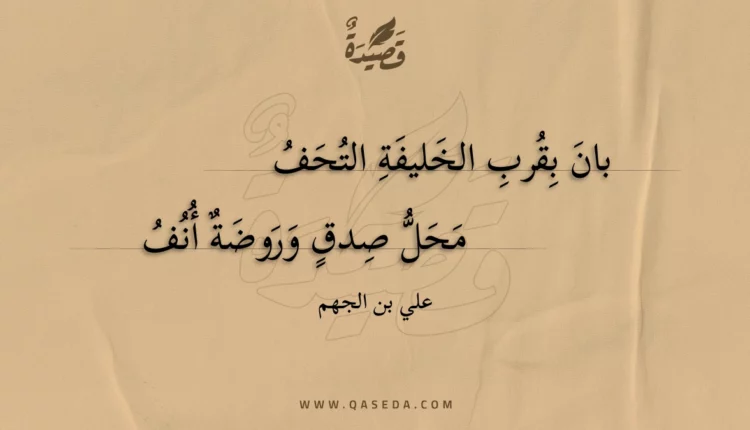 قَصِيدَةٌ
بانَ بِقُربِ الخَليفَةِ التُحَفُ
مَحَلُّ صِدقٍ وَرَوضَةٌ أُنُفُ
علي بن الجهم
WWW.QASEDA.COM